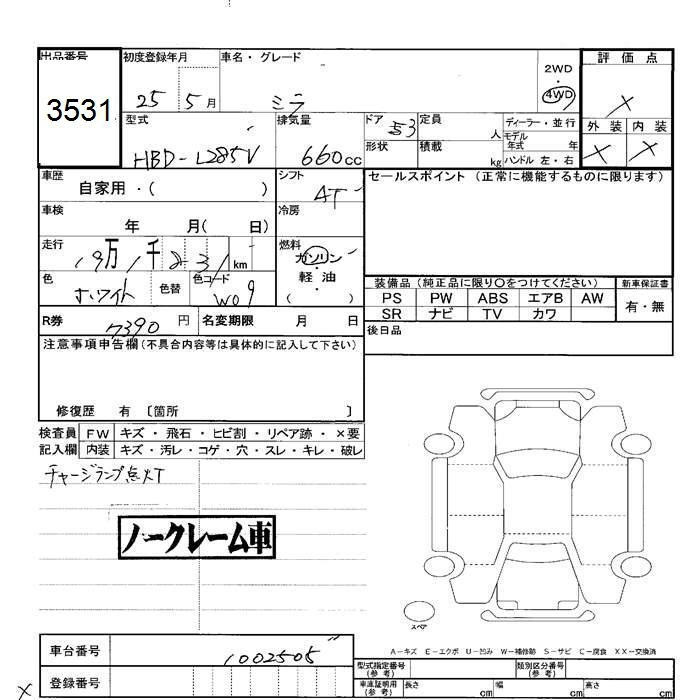 出品番号 初度登録年月 車名・グレード 評価点
3531
25 5月 ミラ
2WD
・
4WD
×
型式 排気量 ドア 53 定員 人 ディーラー・並行 外装 内装
HBD-L285V 660cc
モデル年式 年
形状 積載 kg ハンドル 左・右
× ×
車歴 自家用・( ) シフト AT
セールスポイント (正常に機能するものに限ります)
車検 年 月( 日) 冷房
走行 19万1千231km 燃料 ガソリン・軽油 ( )
色 ホワイト 色替 色コード W09
装備品 (純正品に限り○をつけてください) 新車保証書
PS PW ABS エアB AW 有・無
SR ナビ TV カワ
R券 7390円 名変期限 月 日
後日品
注意事項申告欄(不具合内容等は具体的に記入して下さい)
修復歴 有 〔箇所 〕
検査員 FW キズ・飛石・ヒビ割・リペア跡・×要
記入欄 内装 キズ・汚レ・コゲ・穴・スレ・キレ・破レ
チャージランプ点灯
ノークレーム車
スペア
A-キズ E-エクボ U-凹み W-補修跡 S-サビ C-腐食 XX-交換済
車台番号 1002505
登録番号
型式指定番号(参考) 類別区分番号(参考)
車庫証明用(参考) 長さ cm 幅 cm 高さ cm
×